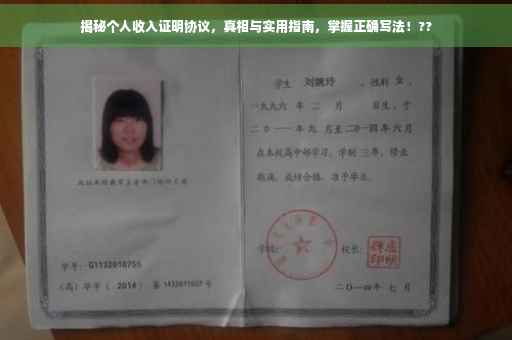 揭秘个人收入证明协议，真相与实用指南，掌握正确写法！??
学生 刘婉玲 ，性别 女 ，
一九九六 年 二 月 日生，于
二〇一一年九 月至二〇一四年六月
在本校高中部学习，学制 三年，修业
期满，成绩合格，准予毕业。
学校：
校长：
学号： G1132010755
（高）毕字（ 2014 ）第 1432011027 号
二〇一四年 七 月